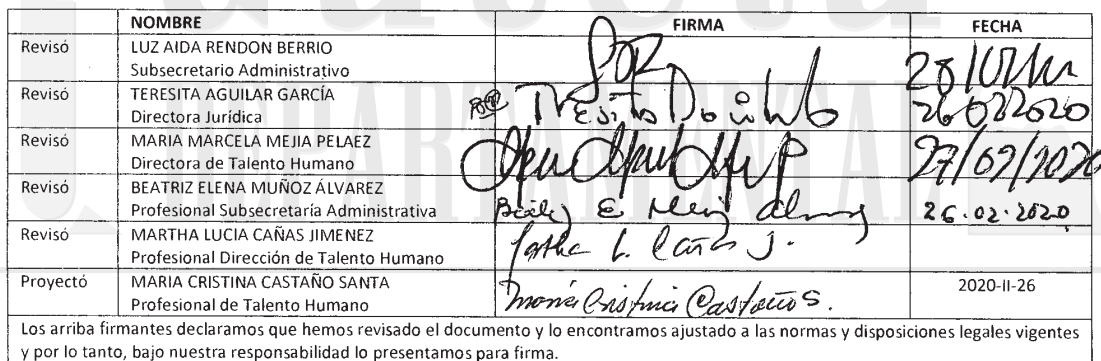 NOMBRE FIRMA FECHA
Revisó LUZ AIDA RENDON BERRIO
Subsecretario Administrativo
Revisó TERESITA AGUILAR GARCÍA 26022020
Directora Jurídica
Revisó MARIA MARCELA MEJIA PELAEZ 27/02/2020
Directora de Talento Humano
Revisó BEATRIZ ELENA MUÑOZ ÁLVAREZ
Profesional Subsecretaría Administrativa 26.02.2020
Revisó MARTHA LUCIA CAÑAS JIMENEZ L. Cañas J.
Profesional Dirección de Talento Humano
Proyectó MARIA CRISTINA CASTAÑO SANTA 2020-II-26
Profesional de Talento Humano Maria Cristina Castaño S.
Los arriba firmantes declaramos que hemos revisado el documento y lo encontramos ajustado a las normas y disposiciones legales vigentes
y por lo tanto, bajo nuestra responsabilidad lo presentamos para firma.